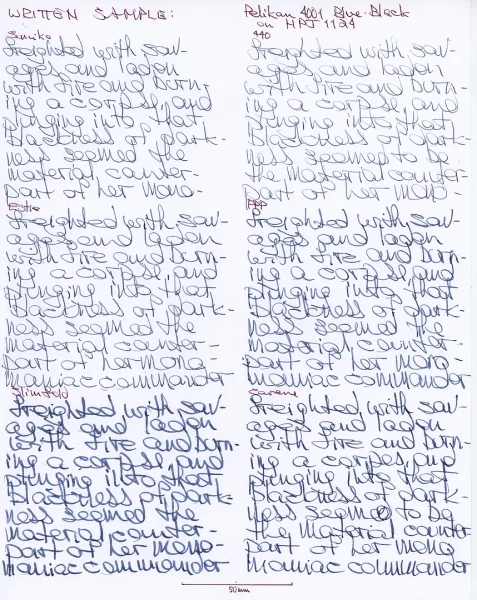 WRITTEN SAMPLE:
Semiko
freighted with sav-
ages and laden
with fire and burn-
ing a corpse, and
plunging into that
blackness of dark-
ness seemed the
material counter-
part of her mono-
freighted with sav-
ages and laden
with fire and burn-
ing a corpse, and
plunging into that
blackness of dark-
ness seemed the
material counter-
part of her mono-
maniac commander
Slimfold
freighted with sav-
ages and laden
with fire and burn-
ing a corpse, and
plunging into that
blackness of dark-
ness seemed the
material counter-
part of her mono-
maniac commander
Pelikan 4001 Blue-Black
on HPJ 1124
440
freighted with sav-
ages and laden
with fire and burn-
ing a corpse and
plunging into that
blackness of dark-
ness seemed to be
the material counter-
part of her mono-
freighted with sav-
ages and laden
with fire and burn-
ing a corpse, and
plunging into that
blackness of dark-
ness seemed the
material counter-
part of her mono-
maniac commander
freighted with sav-
ages and laden
with fire and burn-
ing a corpse, and
plunging into that
blackness of dark-
ness seemed to be
the material counter-
part of her mono-
maniac commander
50mm